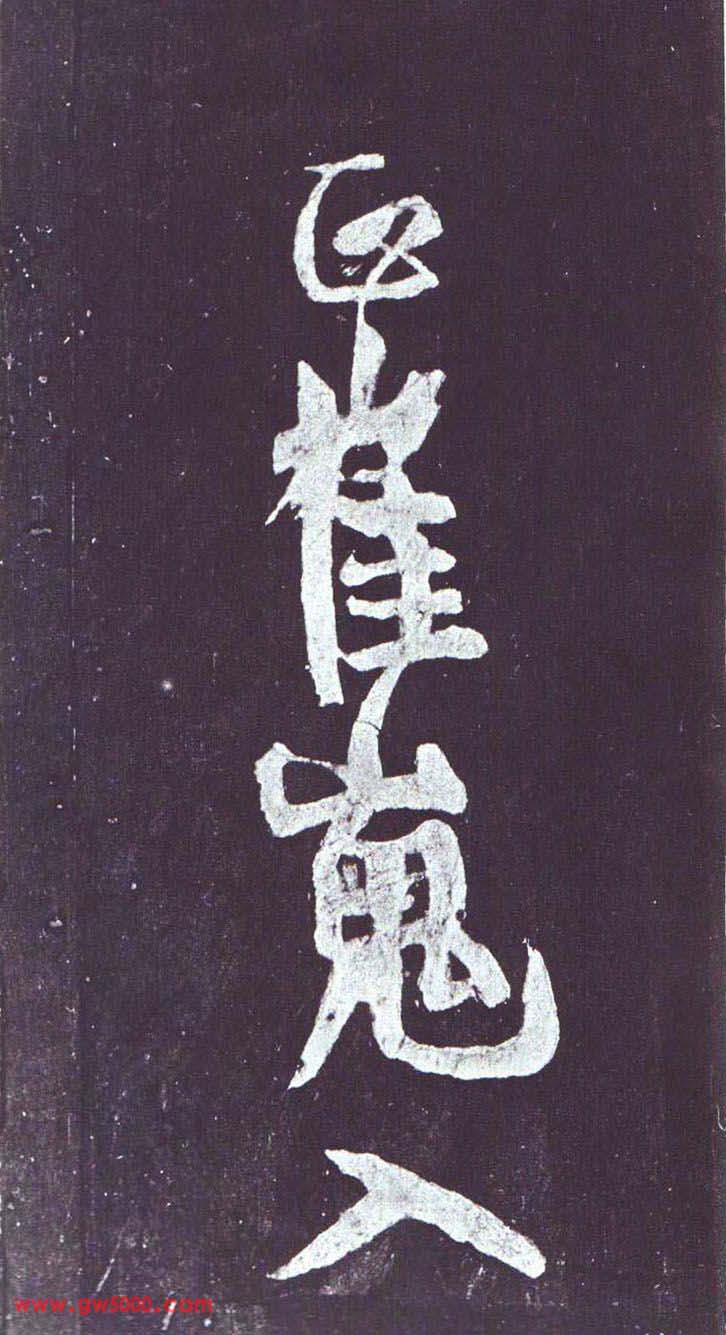 崔嵬入
www.gw5000.com